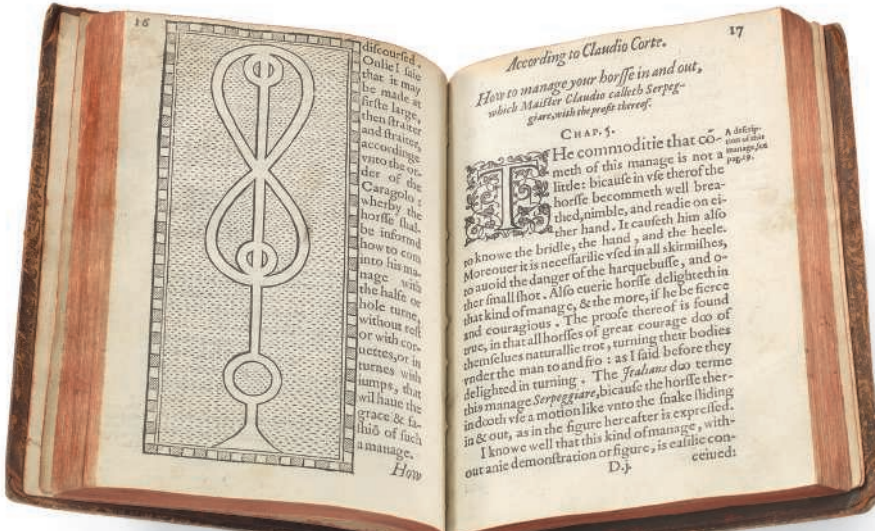 16
discoursed.
Onlie I saie
that it may
be made at
firste large,
then straiter
and straiter,
accordinge
vnto the or-
der of the
Caragolo:
wherby the
horsse shal-
be informd
how to com
into his ma-
nage with
the halfe or
hole turne,
without rest
or with cor-
uettes, or in
turnes with
iumps, that
wil haue the
grace & fa-
shiõ of such
a manage.
How
According to Claudio Corte.
17
How to manage your horsse in and out,
which Maister Claudio calleth Serpeg-
giare, with the profit thereof.
CHAP. 5.
THe commoditie that cõ-
meth of this manage is not a
little: bicause in vse therof the
horsse becommeth well brea-
thed, nimble, and readie on ei-
ther hand. It causeth him also
to knowe the bridle, the hand, and the heele.
Moreouer it is necessarilie vsed in all skirmishes,
to auoid the danger of the harquebusse, and o-
ther small shot. Also euerie horsse delighteth in
that kind of manage, & the more, if he be fierce
and couragious. The proofe thereof is found
true, in that all horsses of great courage doo of
themselues naturallie trot, turning their bodies
vnder the man to and fro: as I said before they
delighted in turning. The Italians doo terme
this manage Serpeggiare, bicause the horsse ther-
in dooth vse a motion like vnto the snake sliding
in & out, as in the figure hereafter is expressed.
I know well that this kind of manage, with-
out anie demonstration or figure, is easilie con-
D.j.
ceiued:
A descrip-
tion of this
manage, see
pag. 19.